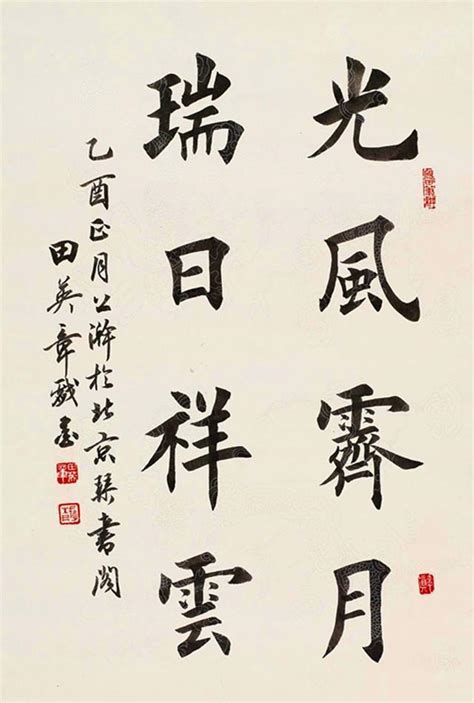 光風霽月
瑞日祥雲
乙酉正月上澣於北京琹書閣
田英章戲墨